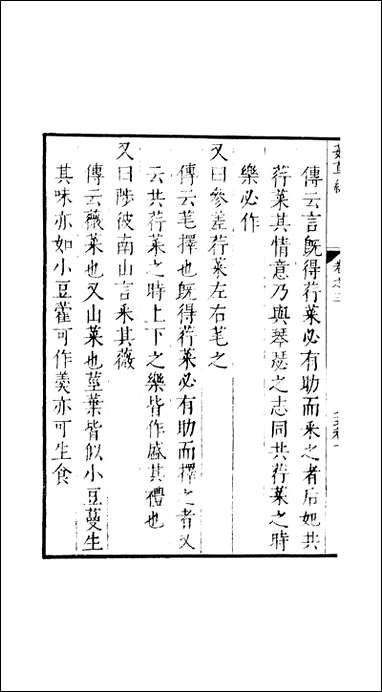 卷之三
傳云言旣得荇菜必有助而釆之者后妃共
荇菜其情意乃與琴瑟之志同共荇菜之時
樂必作
又曰參差荇菜左右芼之
傳云芼擇也旣得荇菜必有助而擇之者又
云共荇菜之時上下之樂皆作盛其禮也
又曰陟彼南山言釆其薇
傳云薇菜也又山菜也莖葉皆似小豆蔓生
其味亦如小豆藿可作羹亦可生食